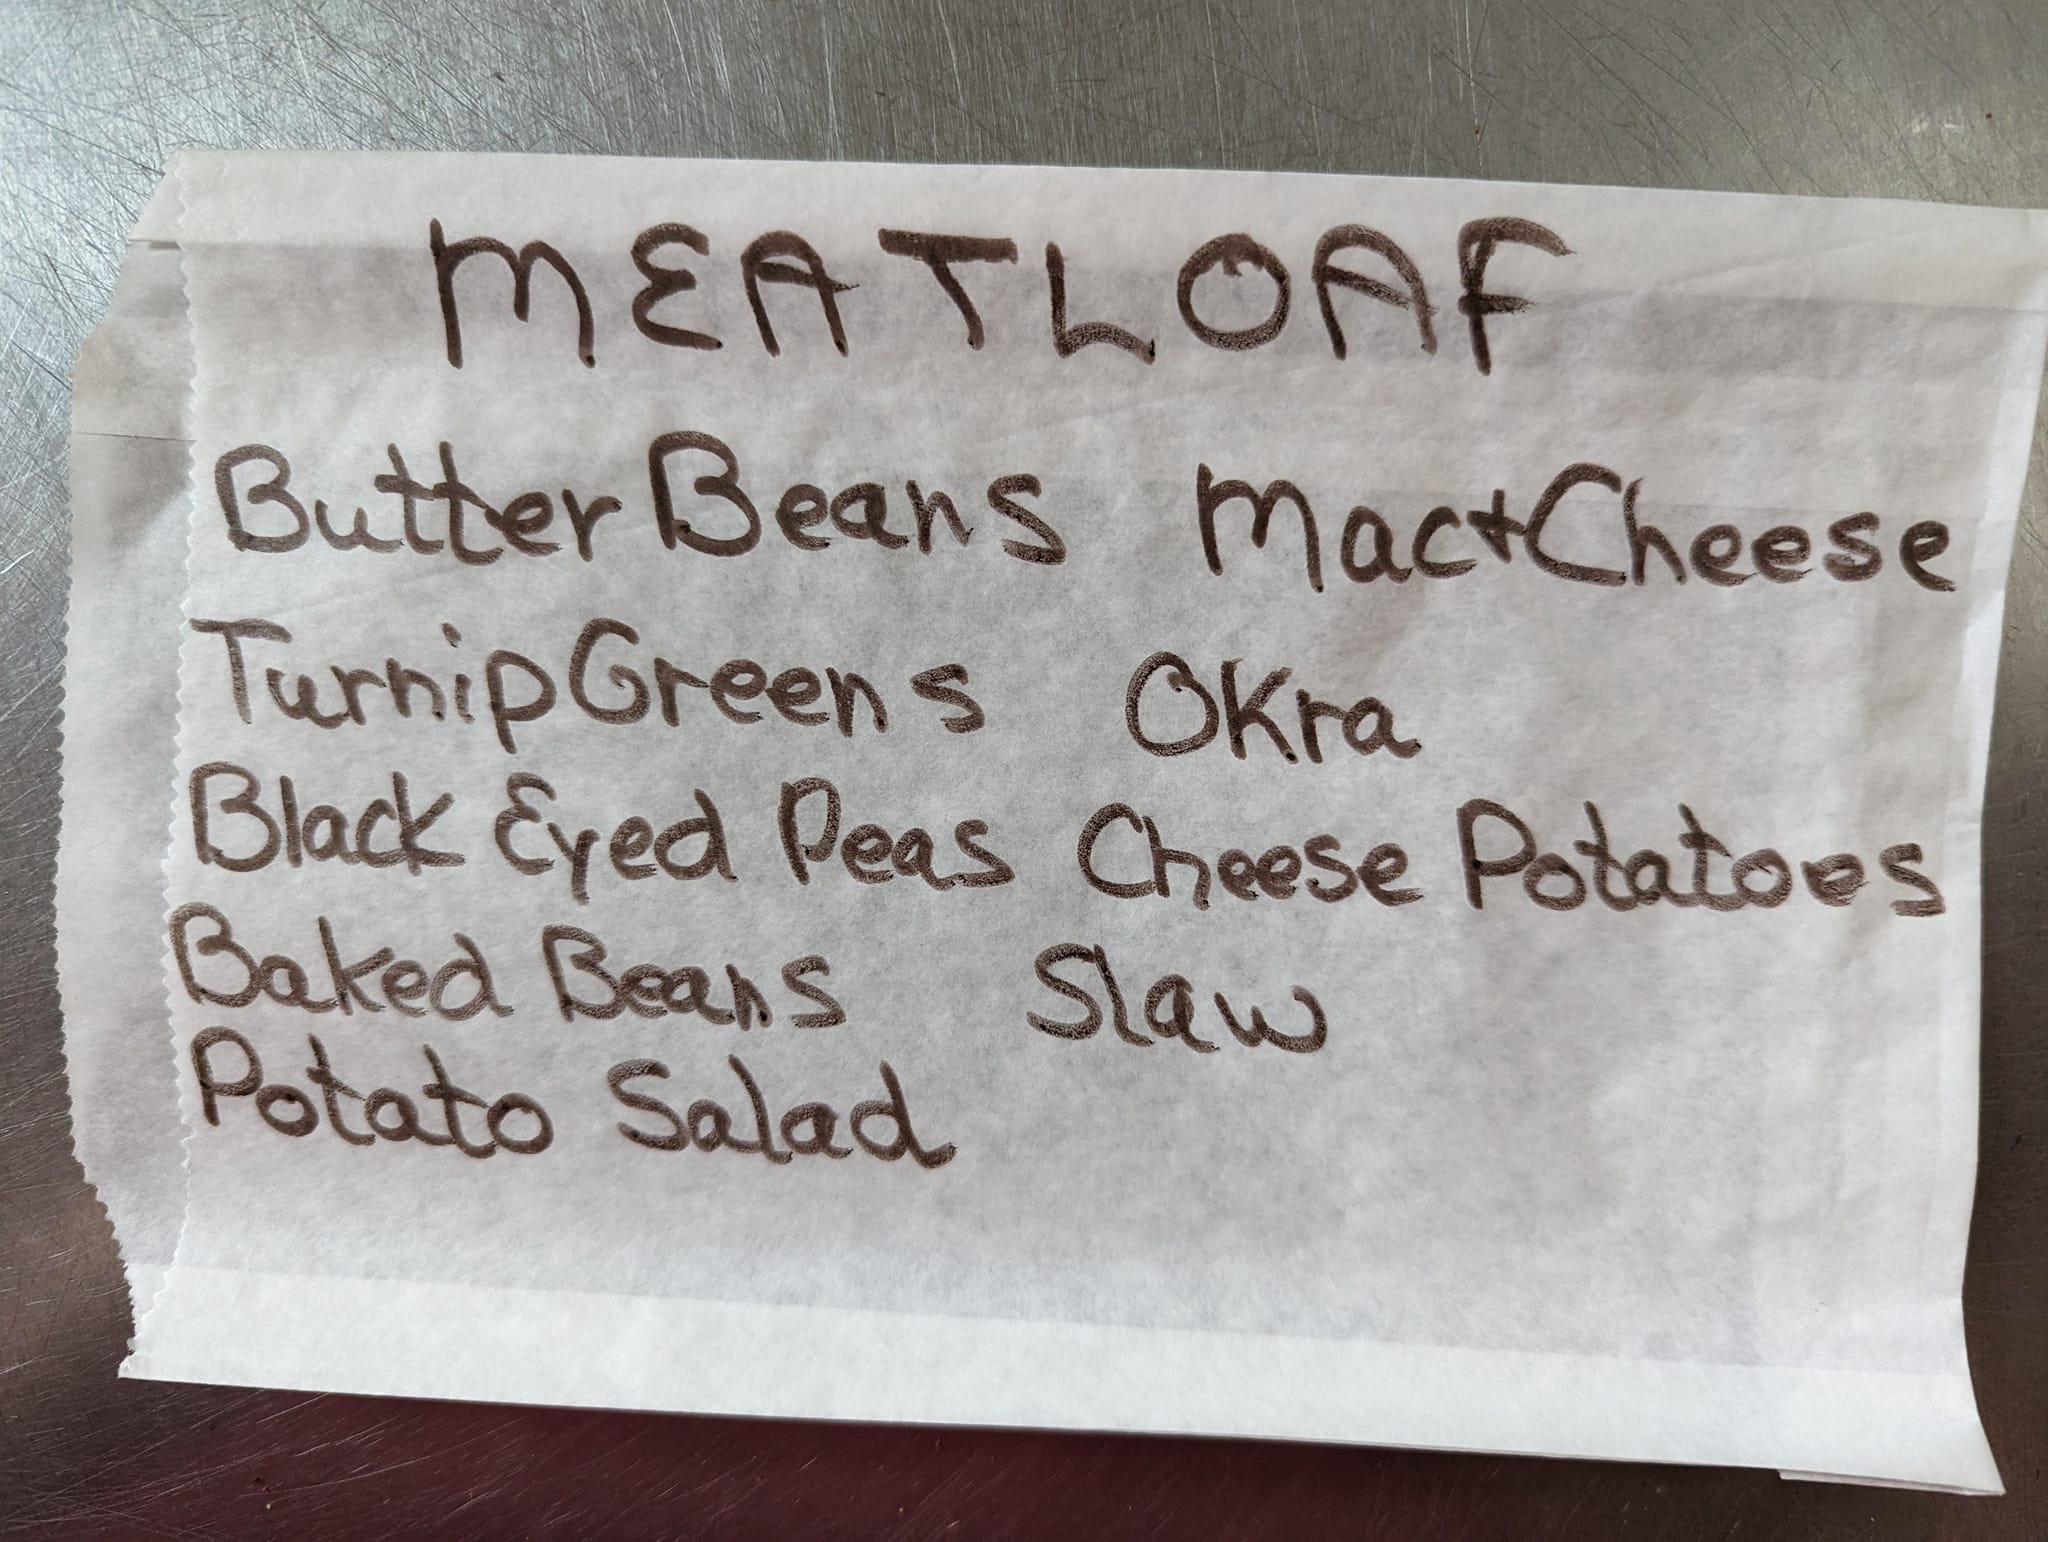 MEATLOAF
Butter Beans Mac+Cheese
Turnip Greens Okra
Black Eyed Peas Cheese Potatoes
Baked Beans Slaw
Potato Salad